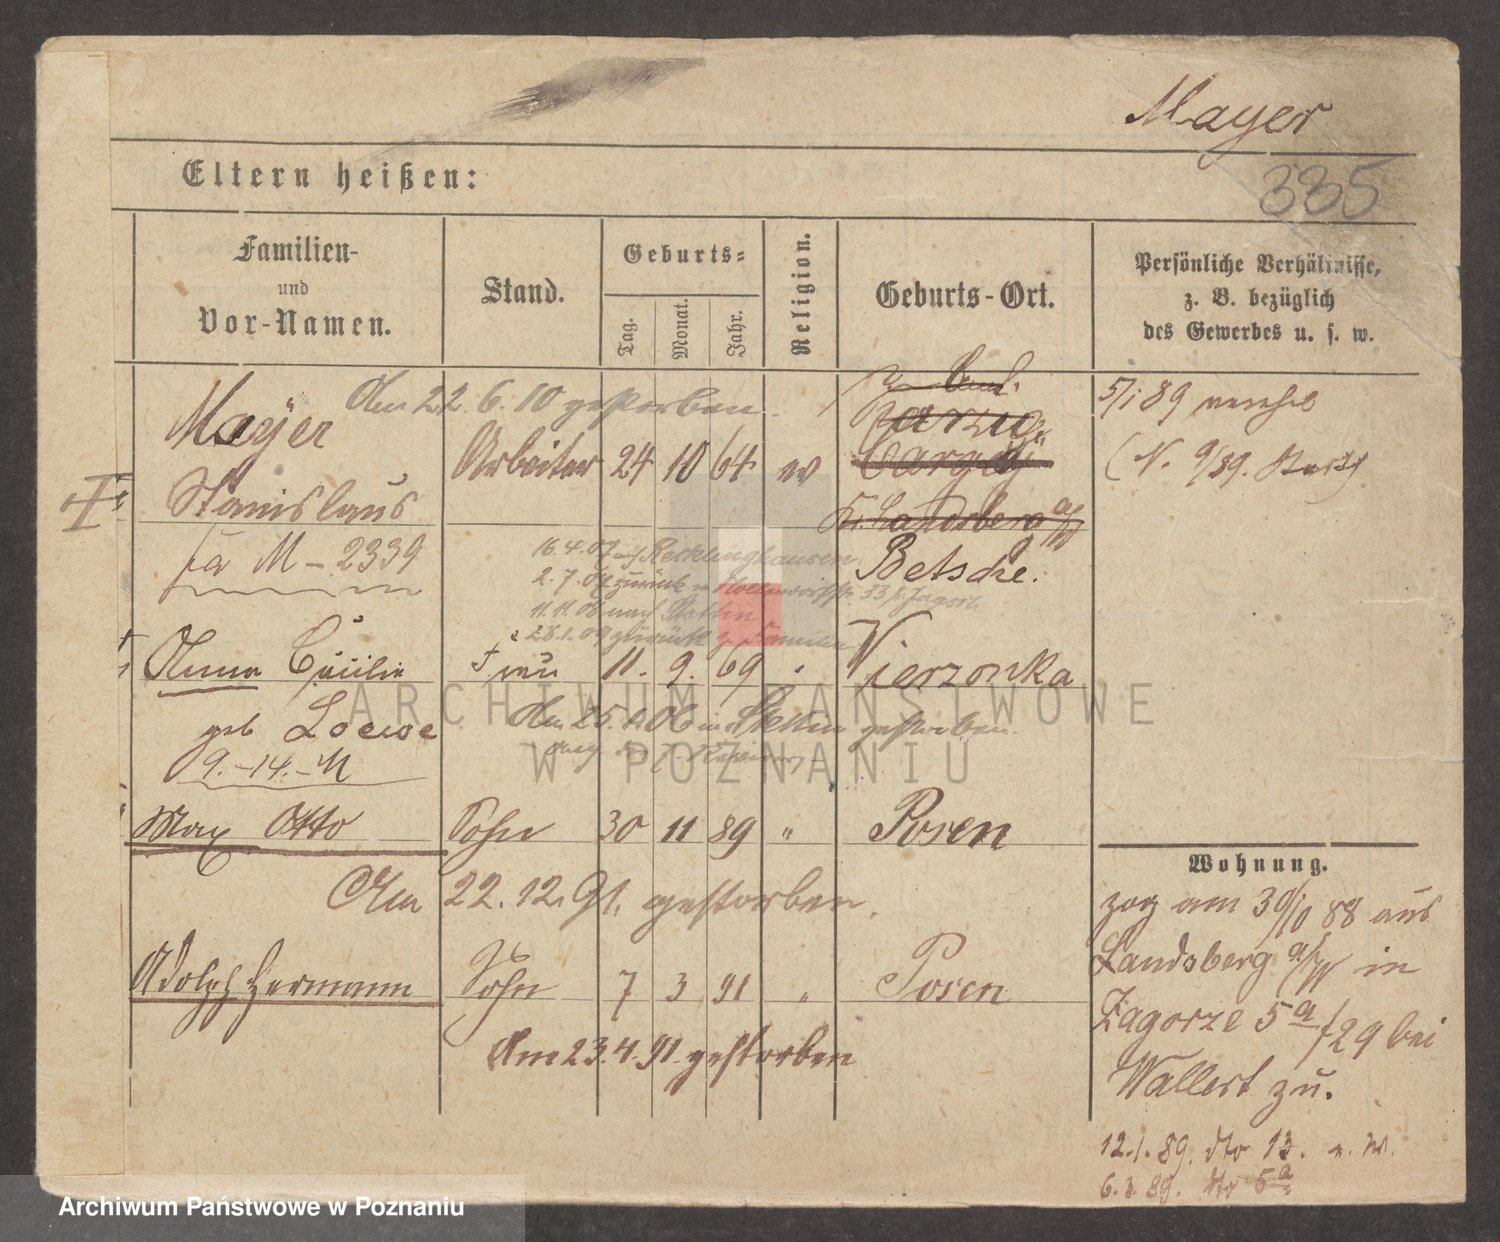 Mayer
335
Eltern heißen:
Familien-
und
Vor-Namen.
Stand.
Geburts-
Tag.
Monat.
Jahr.
Religion.
Geburts-Ort.
Persönliche Verhältnisse,
z. B. bezüglich
des Gewerbes u. s. w.
Am 22. 6. 10 gestorben.
Mayer
Stanislaus
Arbeiter 24 10 64
Landsberg a/W
Betsche.
5/1 89
M - 2339
16.4.07 nach Recklinghausen
2.7.07 zurück
11.11.08 nach Stettin
28.1.09 zurück z. Familie
Anna Cäcilie Frau 11. 9. 69 Vierzonka
geb Loewe
9.-14.-M
Am 25. 06 in Stettin gestorben.
Max Otto Sohn 30 11 89 " Posen
Am 22. 12. 91. gestorben.
Adolph Hermann Sohn 7 3 91 " Posen
Am 23. 4. 91 gestorben
Wohnung.
zog am 30/10 88 aus
Landsberg a/W in
Zagorze 5a /29 bei
Wallert zu.
12.1.89. dto 13.
6.3.89. dto 5a
ARCHIWUM PAŃSTWOWE
W POZNANIU
Archiwum Państwowe w Poznaniu